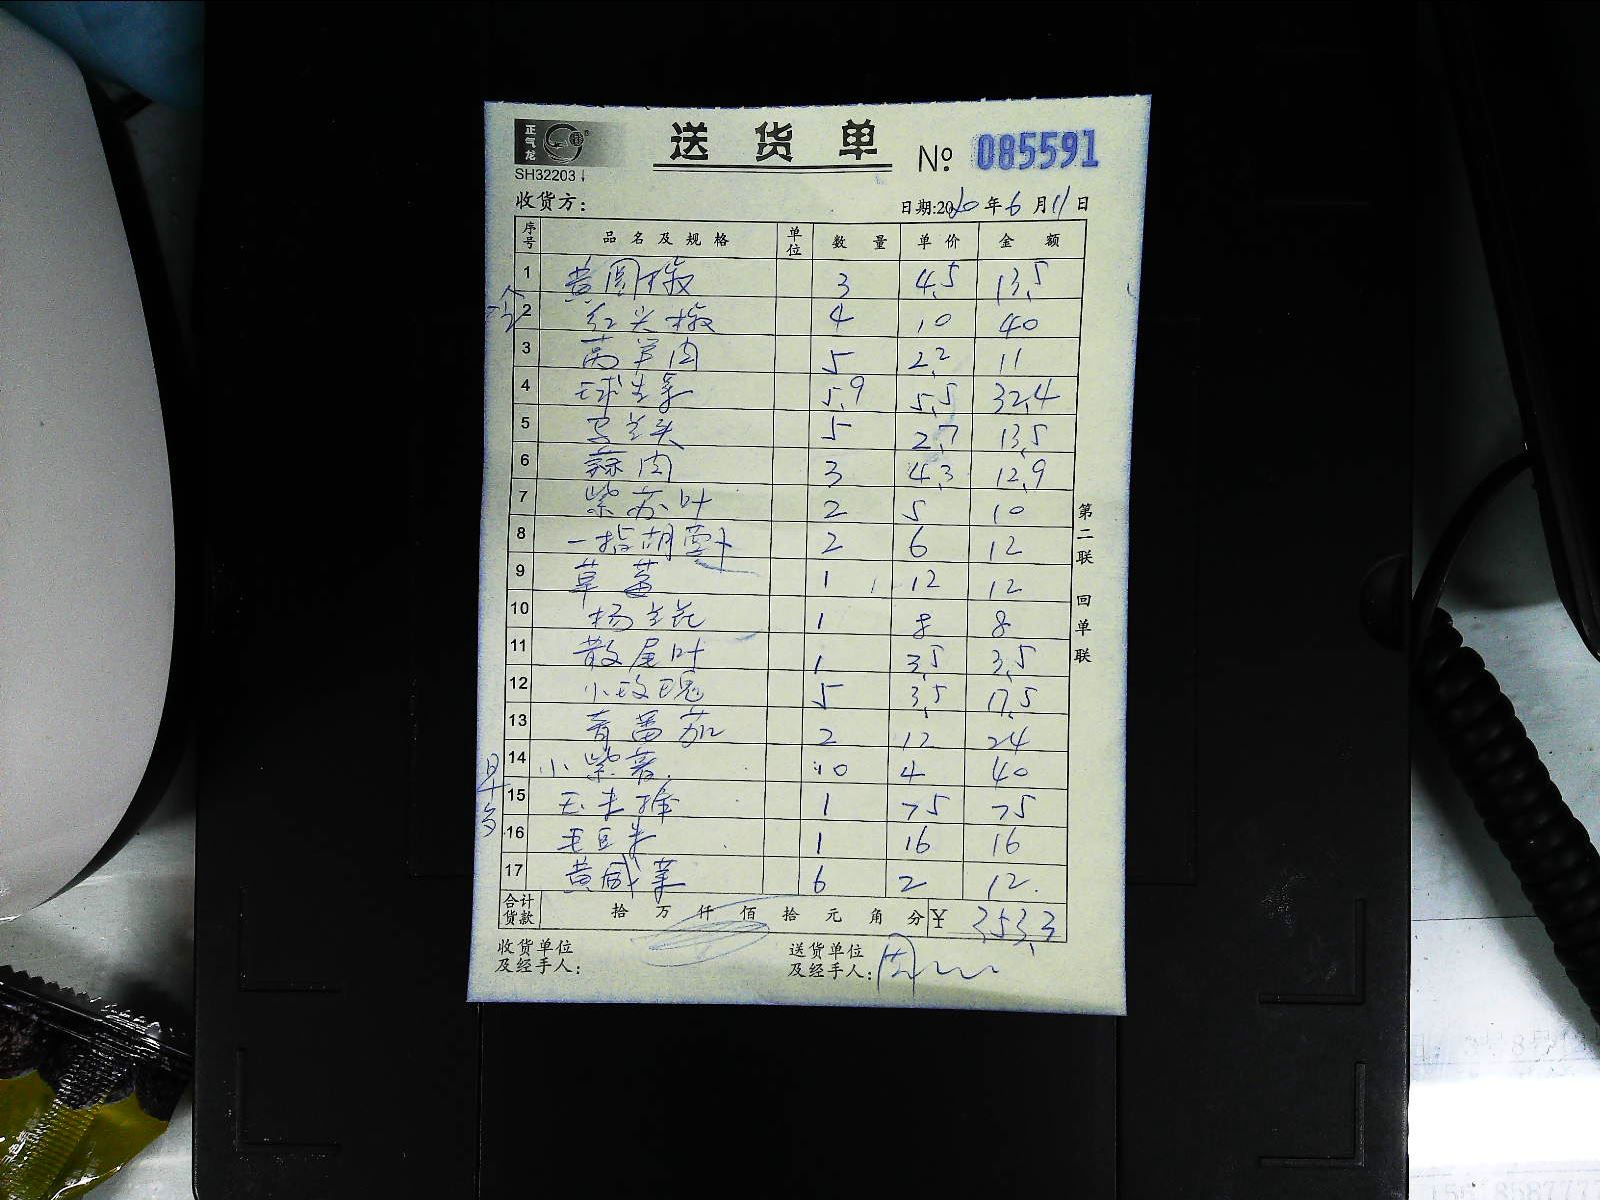 正气龙
送货单 № 085591
SH32203
收货方： 日期:2020年6月11日
序号 品名及规格 单位 数量 单价 金额
1 黄圆椒 3 4.5 13.5
2 红尖椒 4 10 40
3 莴笋肉 5 2.2 11
4 球生菜 5.9 5.5 32.4
5 马兰头 5 2.7 13.5
6 蒜肉 3 4.3 12.9
7 紫苏叶 2 5 10
8 一指胡萝卜 2 6 12
9 草莓 1 12 12
10 杨兰花 1 8 8
11 散尾叶 1 3.5 3.5
12 小玫瑰 5 3.5 17.5
13 青番茄 2 12 24
14 小紫薯 10 4 40
15 玉米 1 75 75
16 毛豆米 1 16 16
17 黄咸菜 6 2 12
合计货款 拾万仟佰拾元角分 ¥ 353.3
收货单位 送货单位
及经手人： 及经手人：
第二联 回单联